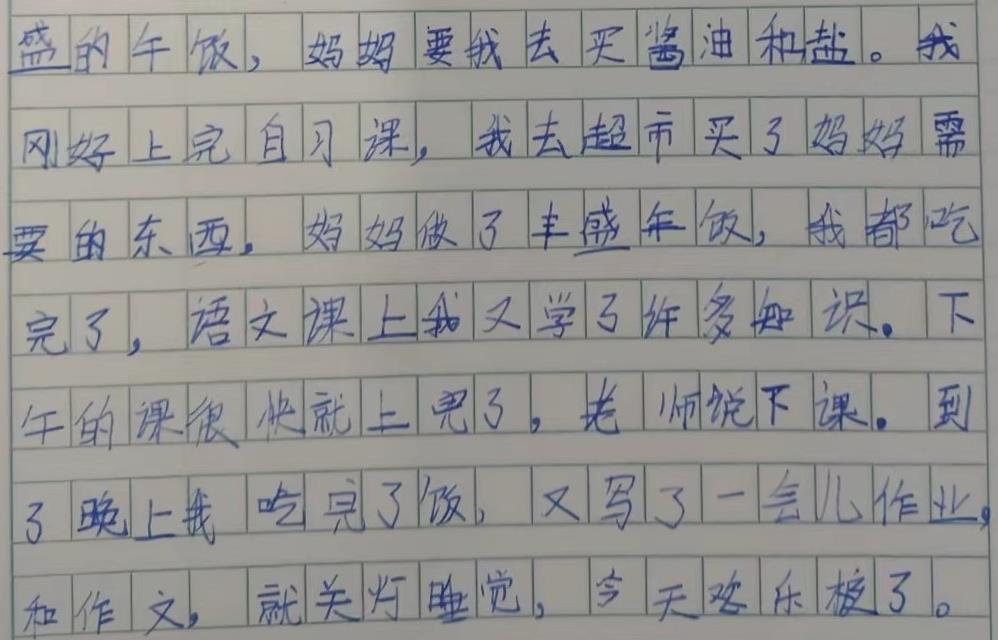 盛的午饭，妈妈要我去买酱油和盐。我
刚好上完自习课，我去超市买了妈妈需
要的东西。妈妈做了丰盛午饭，我都吃
完了，语文课上我又学了许多知识。下
午的课很快就上完了，老师说下课。到
了晚上我吃完了饭，又写了一会儿作业，
和作文，就关灯睡觉，今天欢乐极了。